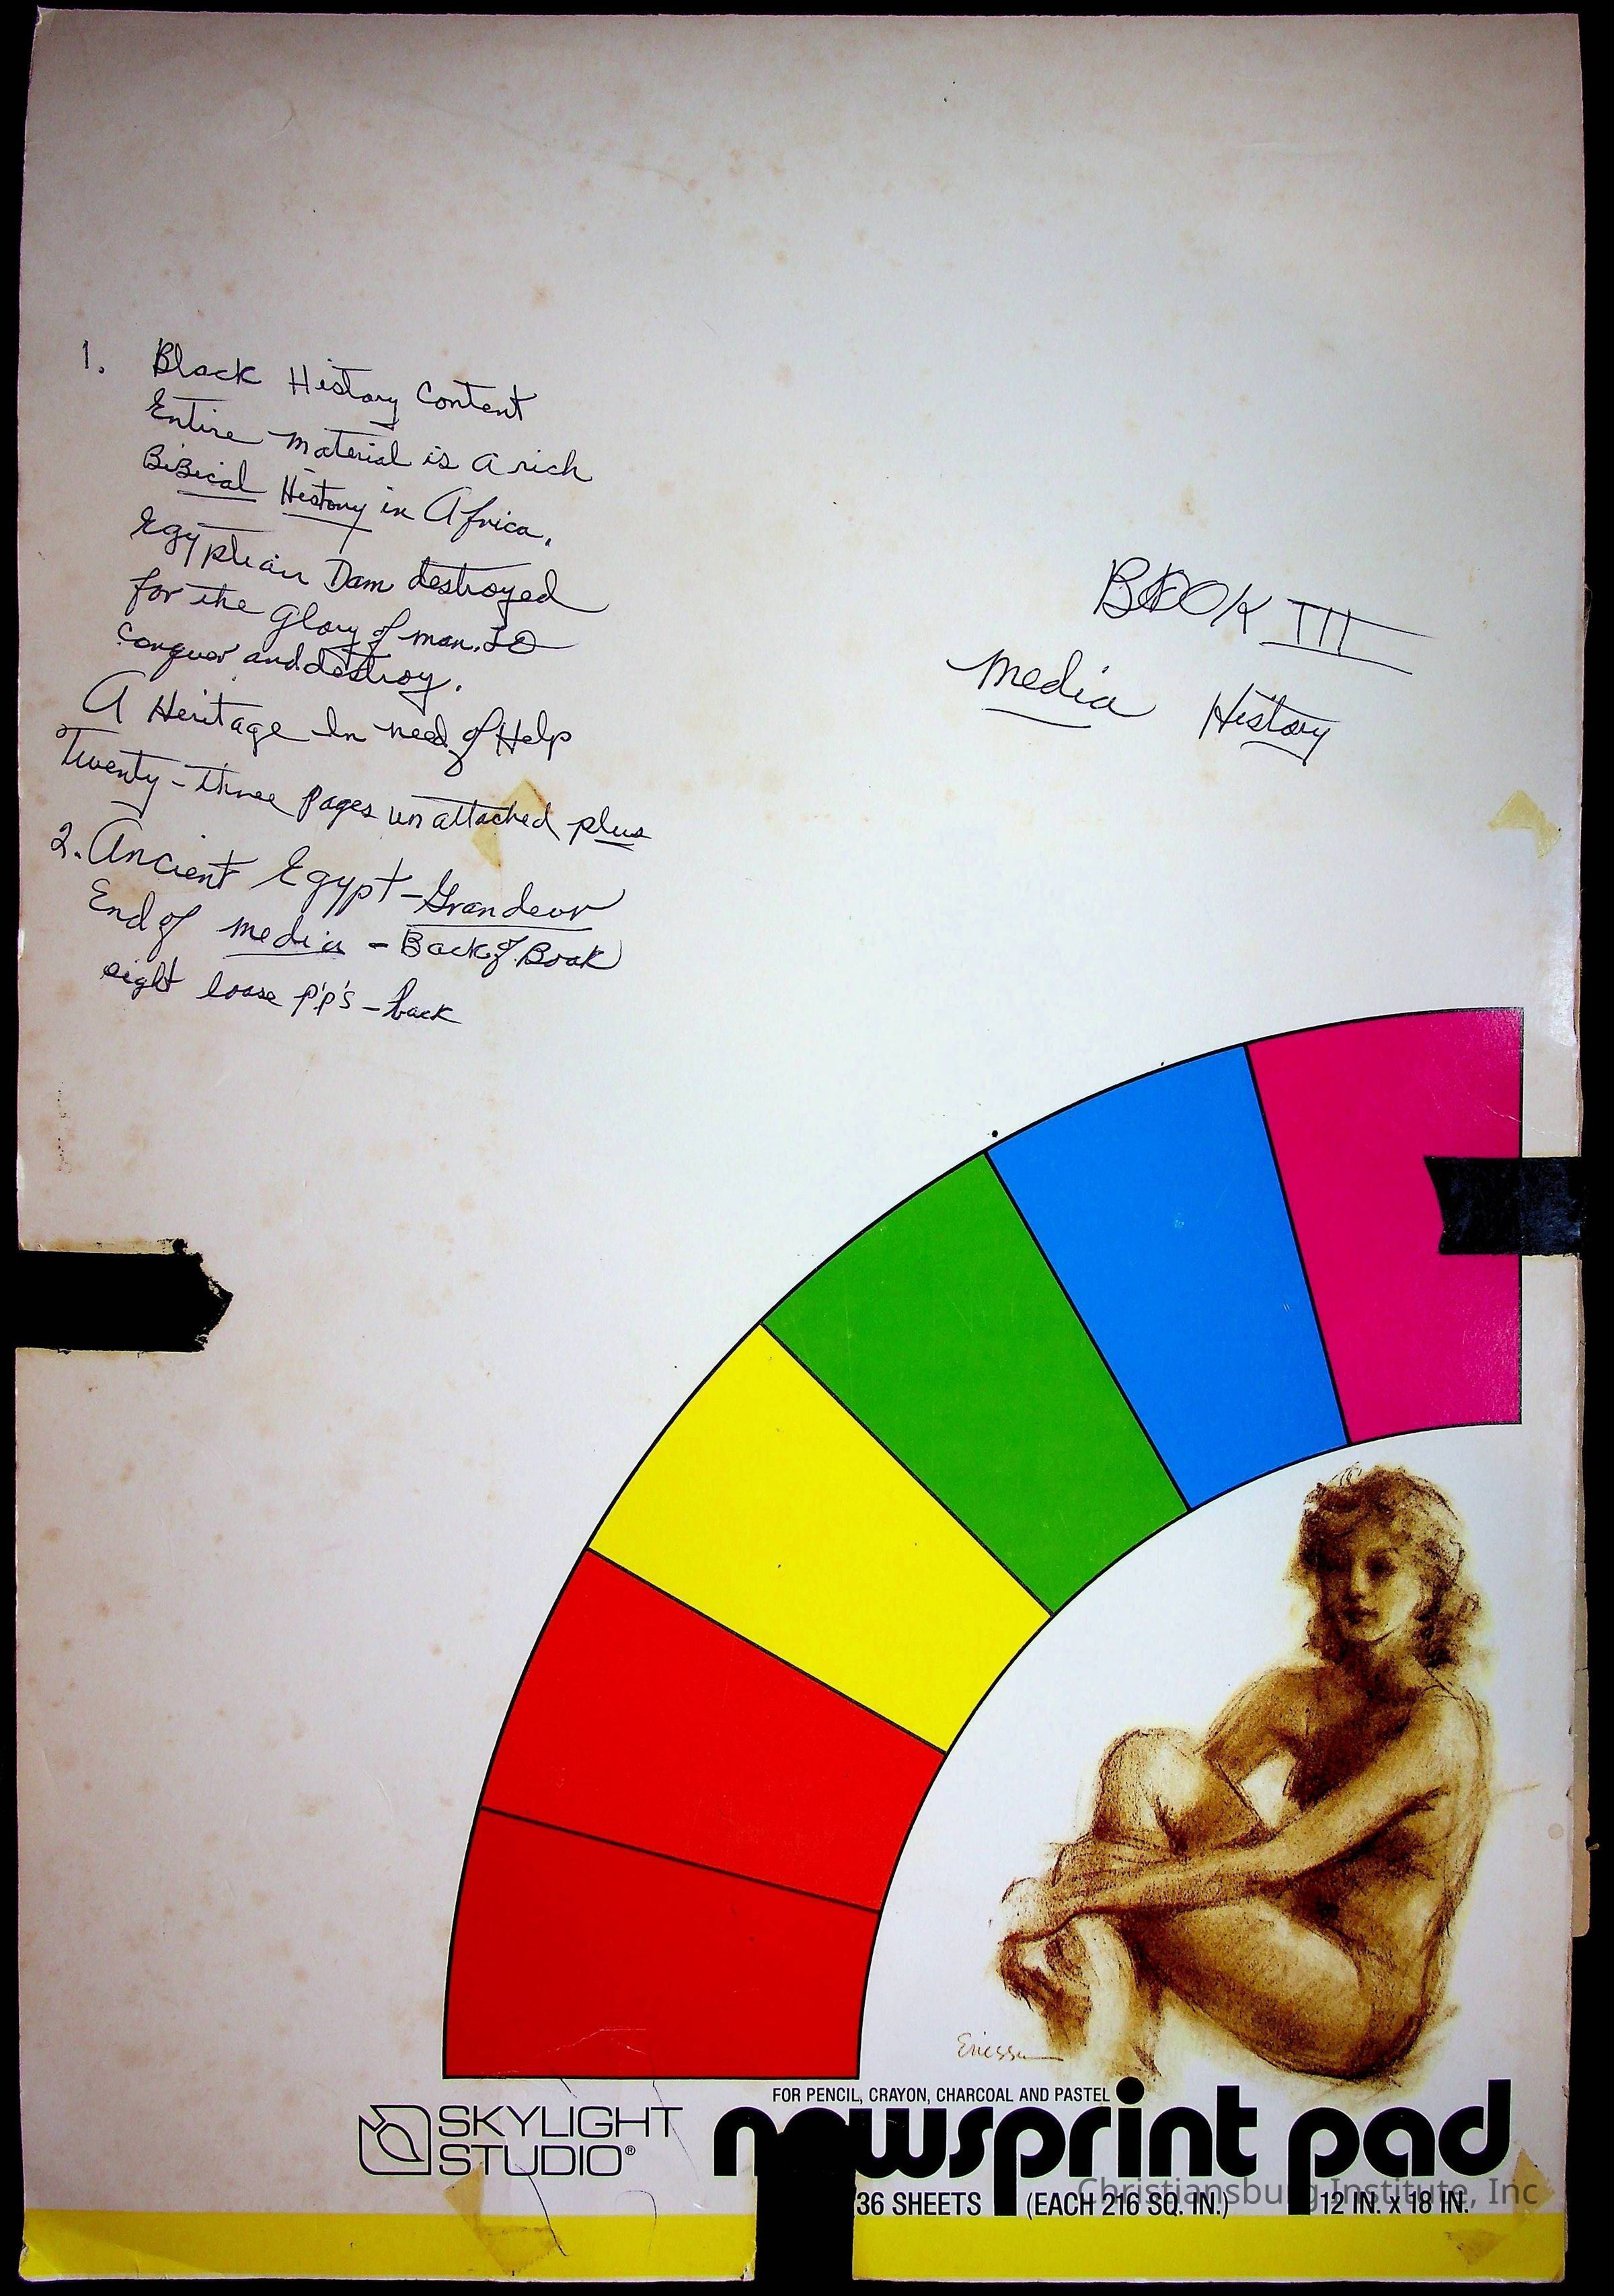 1. Black History Content
Entire material is a rich
BiBical History in Africa.
Egyptian Dam destroyed
for the Glory of man. TO
Conquer and destroy.
A Heritage In need of Help
Twenty-three pages unattached plus
2. Ancient Egypt - Grandeur
End of media - Back of Book
eight loose p'p's - back
BOOK III
media History
Ericsson
FOR PENCIL, CRAYON, CHARCOAL AND PASTEL
SKYLIGHT
STUDIO®
newsprint pad
36 SHEETS (EACH 216 SQ. IN.) 12 IN. x 18 IN.
Christiansburg Institute, Inc